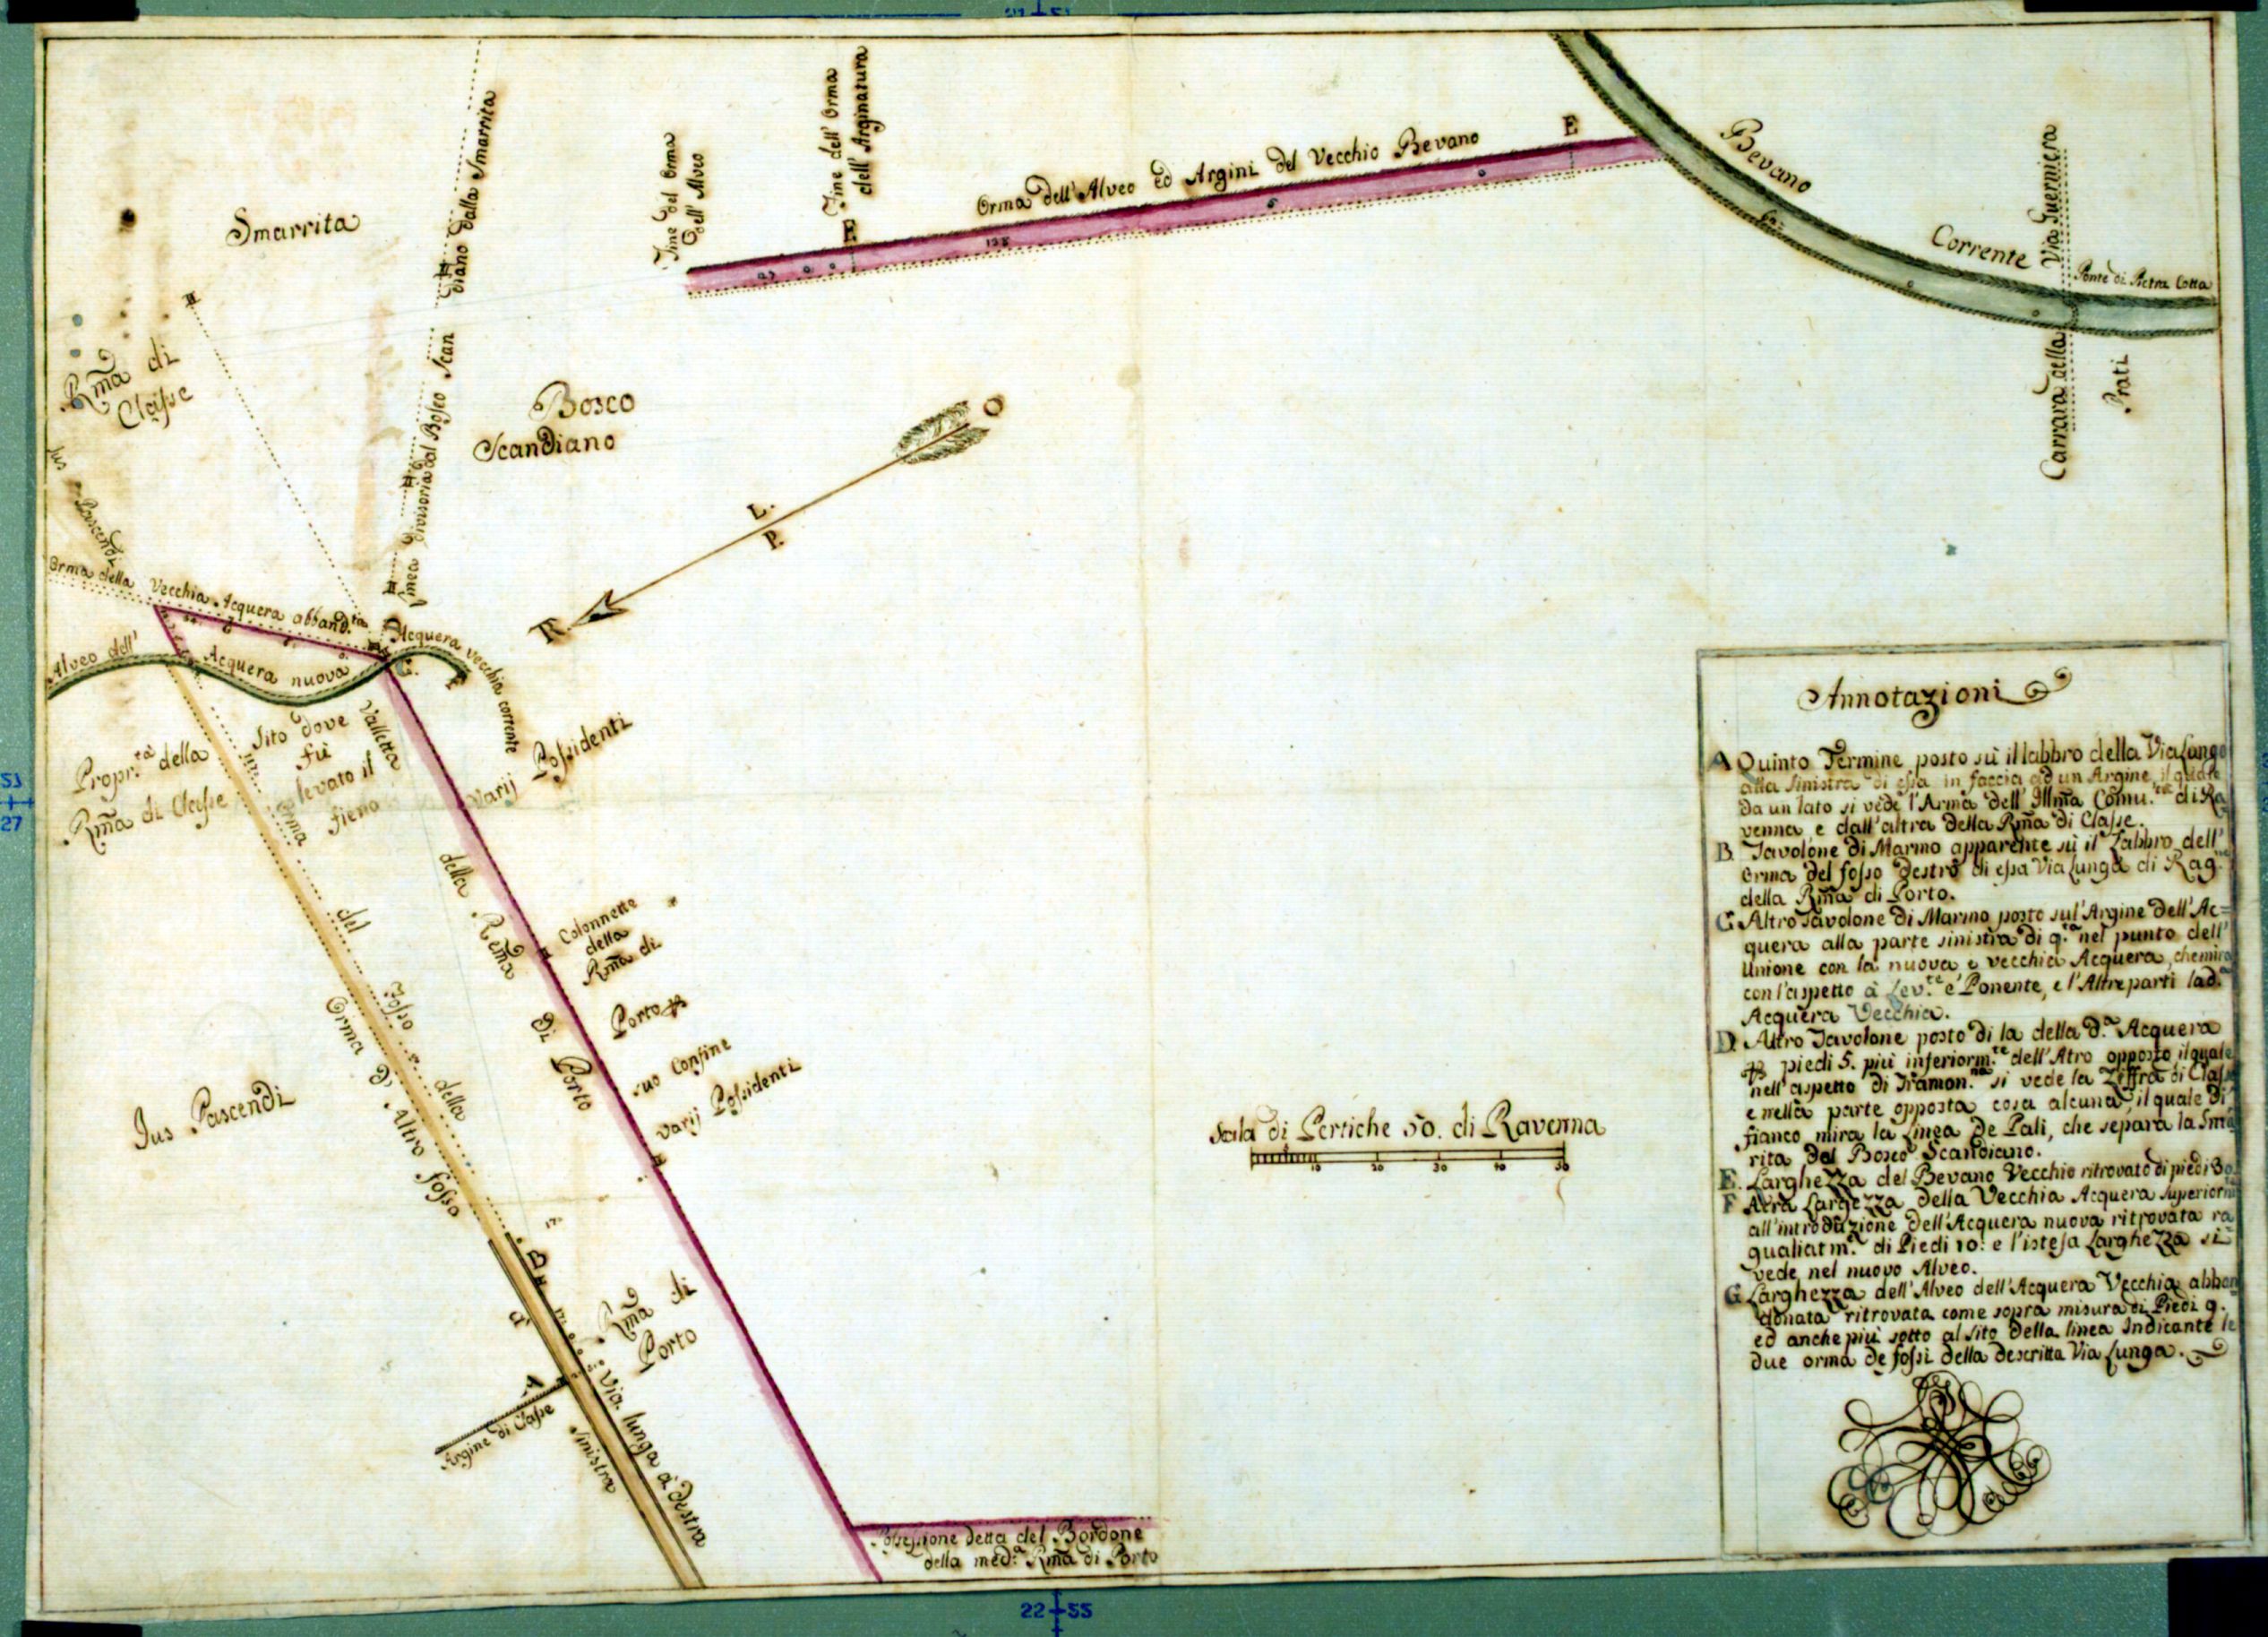 22+51
Smarrita
Rm̃a di
Classe
Jus
Pascendi
Linea divisoria dal Bosco Scan
diano dalla Smarrita
Bosco
Scandiano
Fine del Orma
dell' Alveo
Fine dell' Orma
dell' Arginatura
F
Orma dell'Alveo ed Argini del Vecchio Bevano
E
Bevano
Corrente
Via Guerniera
Carrara della
Ponte di Pietra Cotta
Prati
O
L.
P.
T.
Orma della Vecchia Acquera abband.ta
Alveo dell' Acquera nuova
D
C.
F
Acquera vecchia corrente
Propr.tà della
Rm̃a di Classe
Sito dove
fù
levato il
fieno
Valletta
della Rem̃a di Porto
Varij Possidenti
Orma del Fosso della
Orma d' Altro fosso
Colonnette
della
Rm̃a di
Porto
suo Confine
varij Possidenti
Jus Pascendi
B
A
Argine di Classe
Rm̃a di
Porto
Via lunga à destra
sinistra
Possessione detta del Bordone
della med.a Rm̃a di Porto
Scala di Pertiche 50. di Ravenna
10 20 30 40 50
Annotazioni
A Quinto Termine posto sù il labbro della Via Lunga
alla sinistra di essa in faccia ad un Argine, il quale
da un lato si vede l'Arma dell' Illm̃a Comu.tà di Ra
venna, e dall'altra della Rm̃a di Classe.
B. Tavolone di Marmo apparente sù il Labbro dell'
Orma del fosso destro di essa Via Lunga di Rag.
della Rm̃a di Porto.
C. Altro Tavolone di Marmo posto sul'Argine dell'Ac=
quera alla parte sinistra di q.ta nel punto dell'
Unione con la nuova e vecchia Acquera, che mira
con l'aspetto à Lev.te e Ponente, e l'Altre parti lad.a
Acquera Vecchia.
D. Altro Tavolone posto di la della d.a Acquera
piedi 5. più inferiorm.te dell'Atro opposto il quale
nell'aspetto di Tramon.na si vede la Ziffra di Classe
e nella parte opposta cosa alcuna, il quale di
fianco mira la Linea de Pali, che separa la Sma
rita dal Bosco Scandiano.
E. Larghezza del Bevano Vecchio ritrovato di piedi 30
F Altra Largezza della Vecchia Acquera superiorm.
all'introduzione dell'Acquera nuova ritrovata ra
gualiatm.e di Piedi 10: e l'istesa Larghezza si
vede nel nuovo Alveo.
G Larghezza dell'Alveo dell'Acquera Vecchia abban
donata ritrovata come sopra misura di Piedi 9.
ed anche più sotto al sito della linea Indicante le
due orma de fossi della descritta Via Lunga.
53
27
22+55